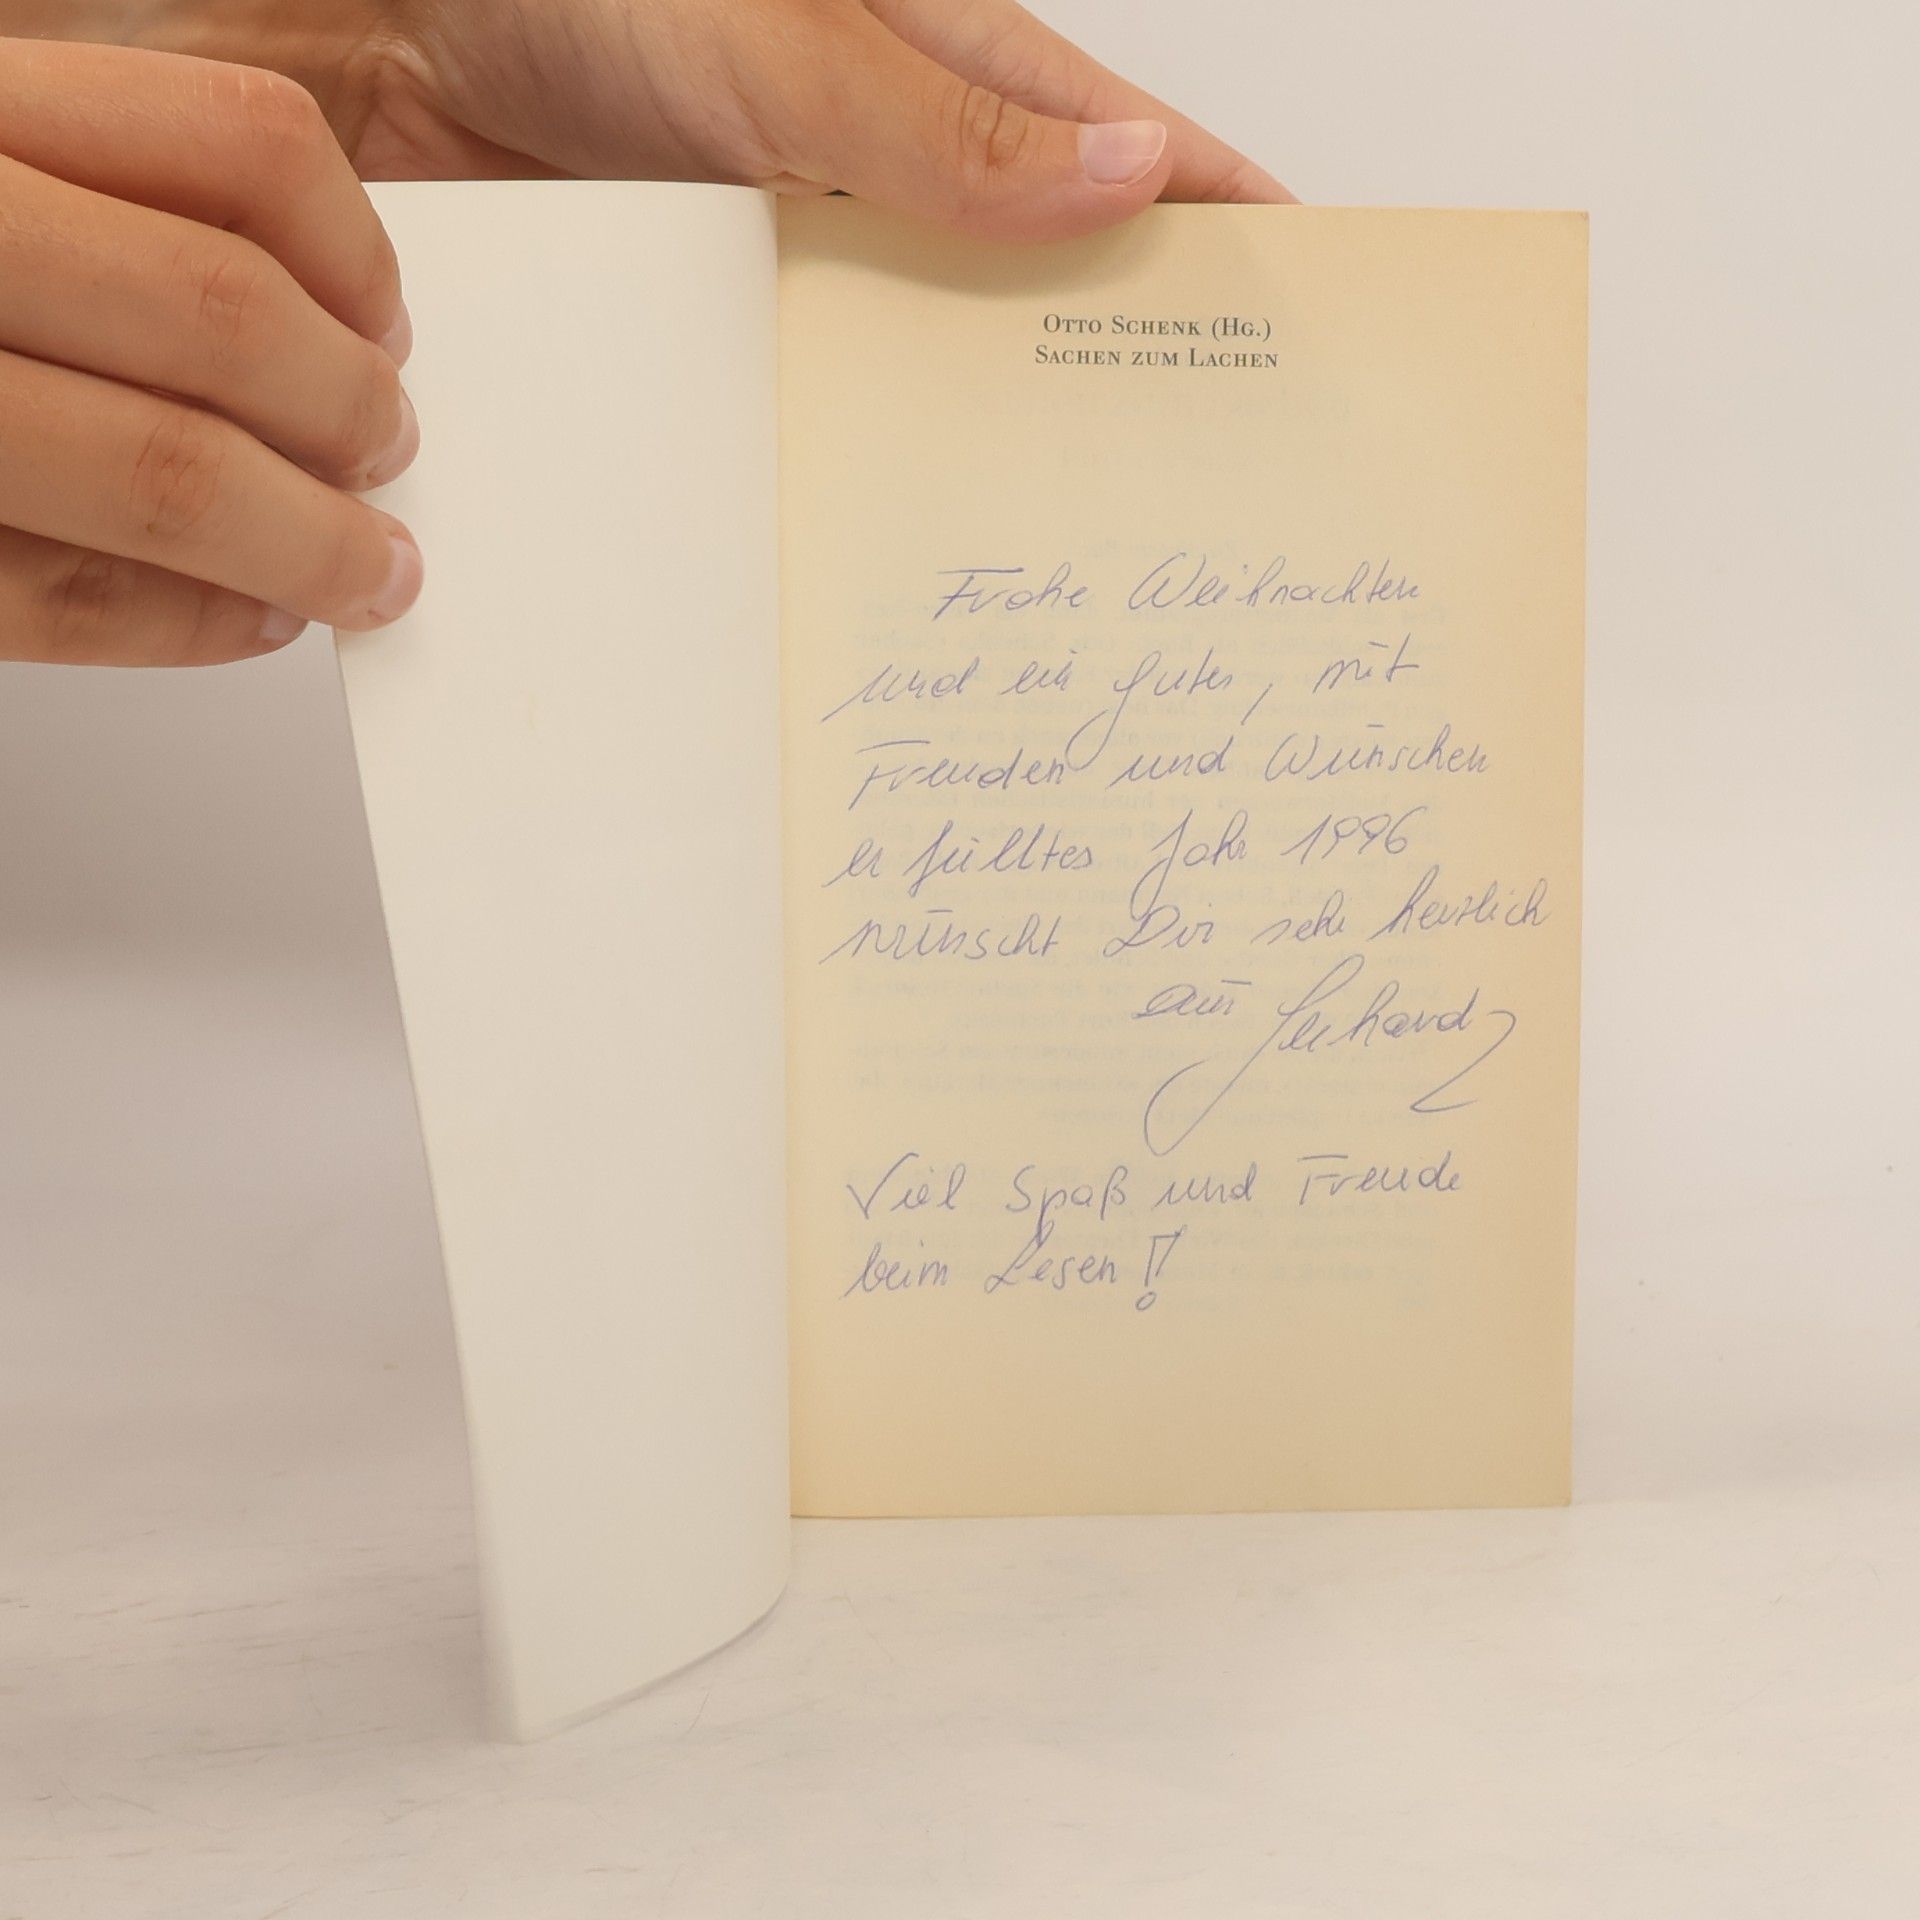 OTTO SCHENK (HG.)
SACHEN ZUM LACHEN
Frohe Weihnachten
und ein gutes, mit
Freuden und Wünschen
erfülltes Jahr 1996
wünscht Dir sehr herzlich
Gerhard
Viel Spaß und Freude
beim Lesen!